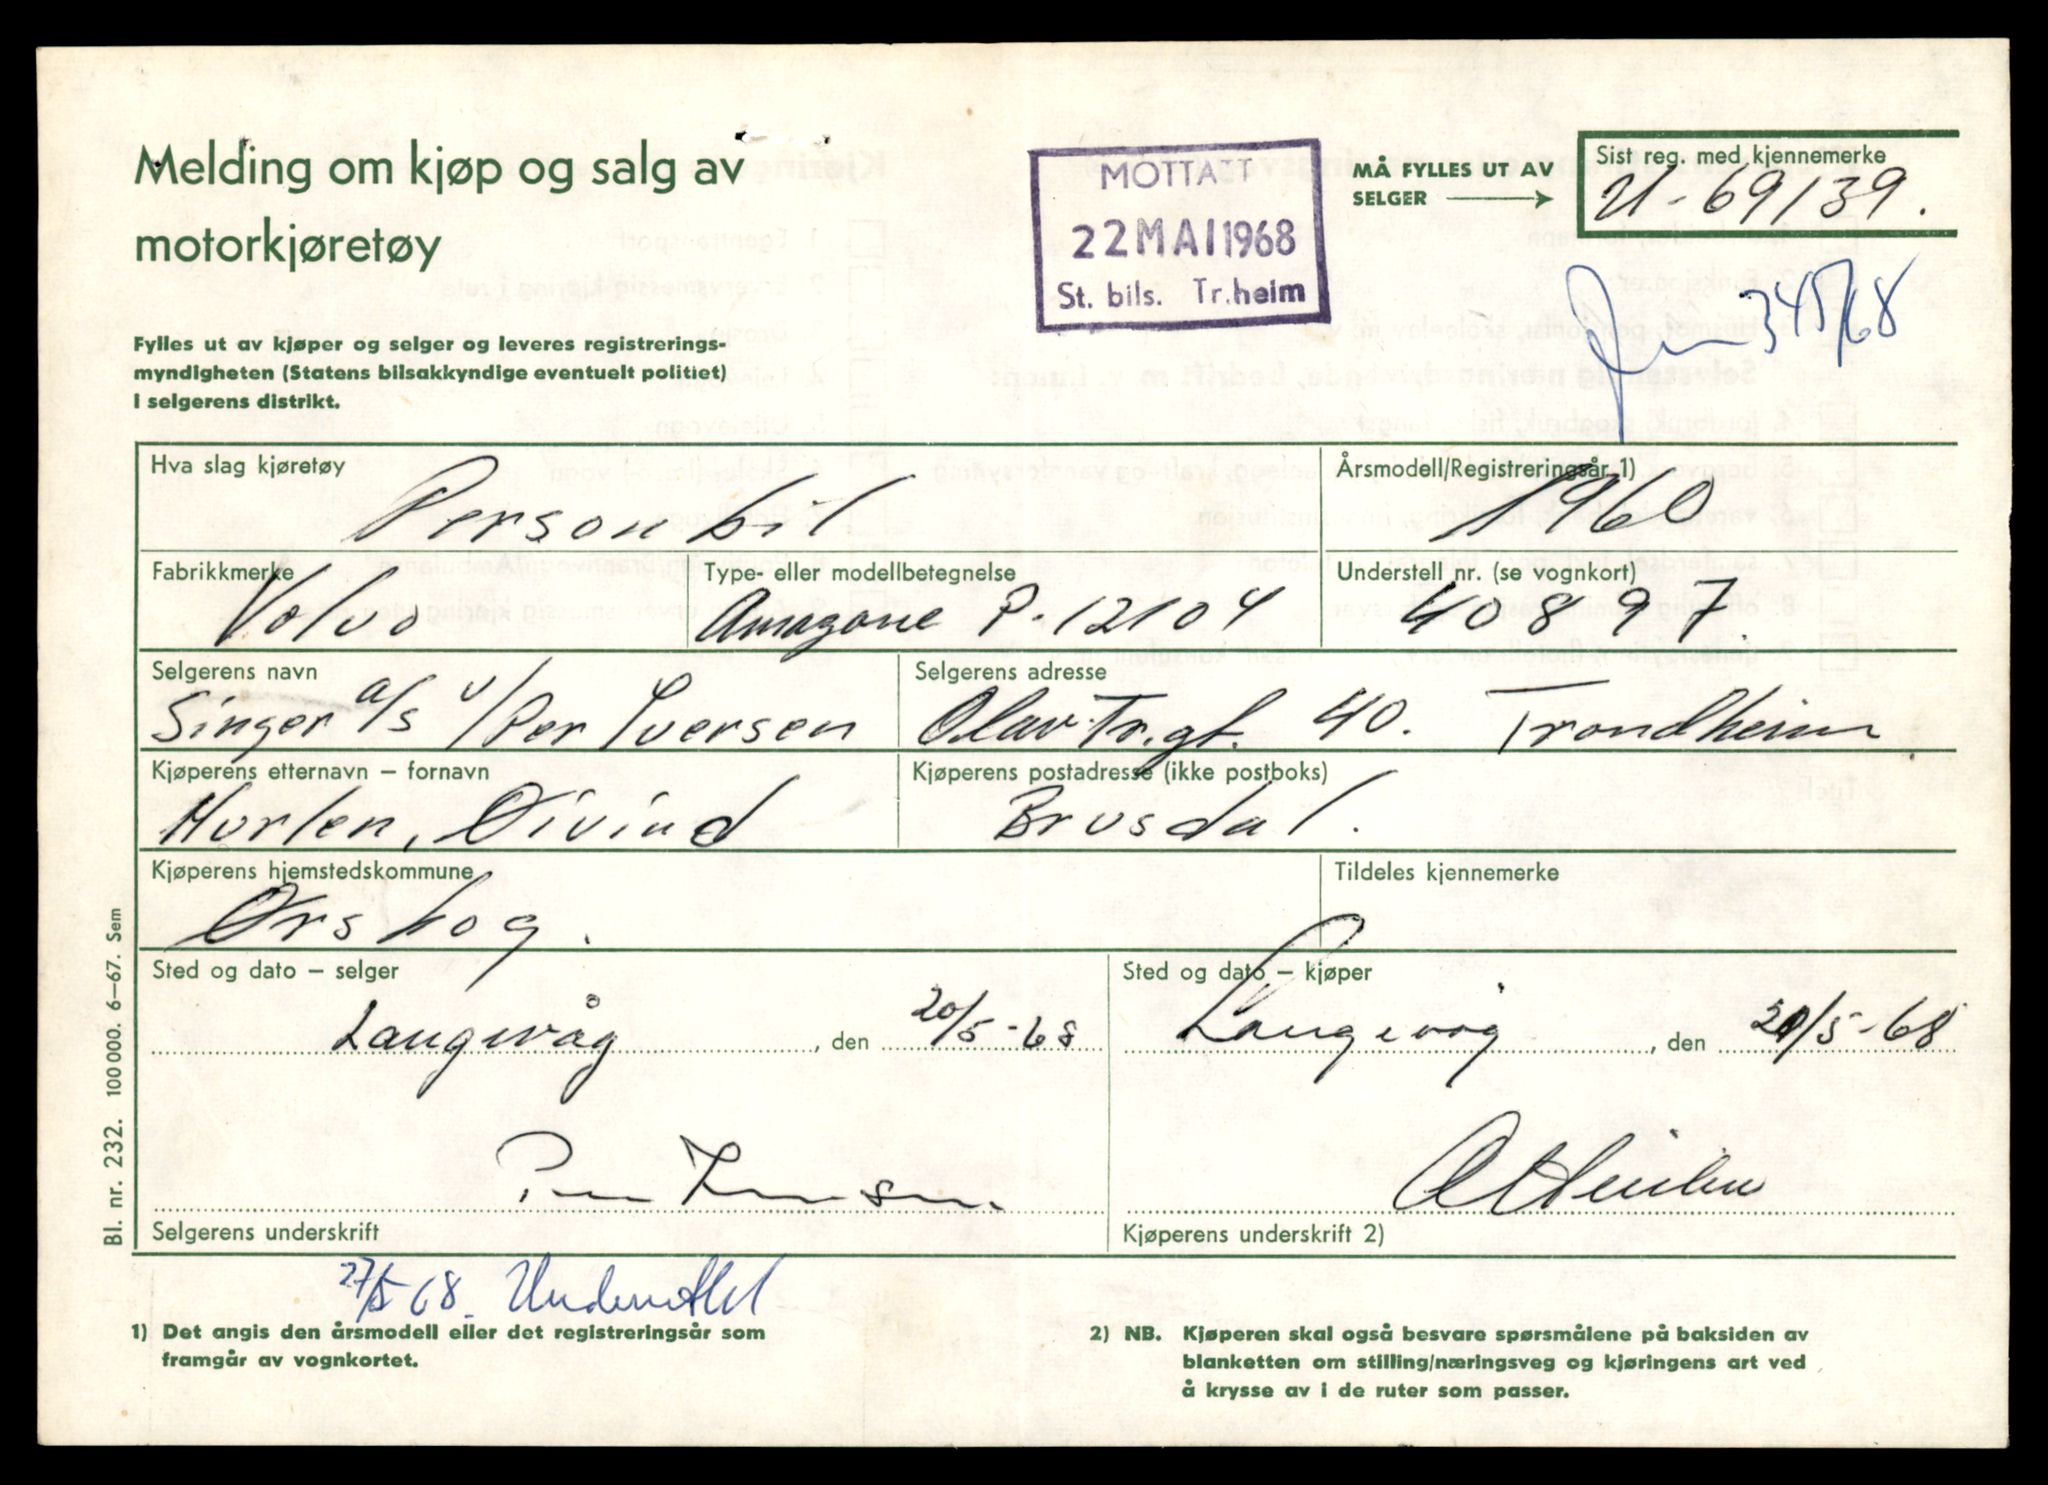 Melding om kjøp og salg av
motorkjøretøy
Fylles ut av kjøper og selger og leveres registrerings-
myndigheten (Statens bilsakkyndige eventuelt politiet)
i selgerens distrikt.
MOTTATT
22 MAI 1968
St. bils. Tr.heim
MÅ FYLLES UT AV
SELGER
Sist reg. med kjennemerke
U-69139.
345/68
Hva slag kjøretøy
Personbil
Årsmodell/Registreringsår 1)
1960
Fabrikkmerke
Volvo
Type- eller modellbetegnelse
Amazone P-12104
Understell nr. (se vognkort)
40897.
Selgerens navn
Singer a/s v/Per Iversen
Selgerens adresse
Olav Tr.gt. 40. Trondheim
Kjøperens etternavn – fornavn
Hurlen, Øivind
Kjøperens postadresse (ikke postboks)
Brusdal.
Kjøperens hjemstedskommune
Ørskog.
Tildeles kjennemerke
Sted og dato – selger
Langevåg, den 20/5-68
Sted og dato – kjøper
Langevåg, den 20/5-68
Per Iversen.
Selgerens underskrift
Ø Hurlen
Kjøperens underskrift 2)
27/5 68.
1) Det angis den årsmodell eller det registreringsår som
framgår av vognkortet.
2) NB. Kjøperen skal også besvare spørsmålene på baksiden av
blanketten om stilling/næringsveg og kjøringens art ved
å krysse av i de ruter som passer.
Bl. nr. 232. 100 000. 6–67. Sem